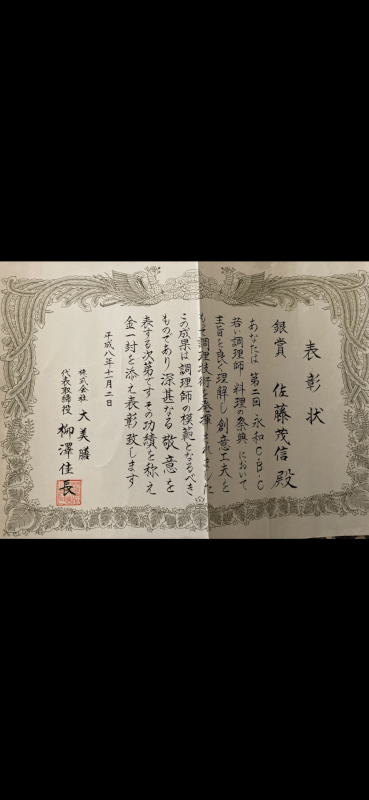 表彰状
銀賞 佐藤茂信殿
あなたは 第二回・永和C・B・C
若い調理師 料理の祭典 において
主旨を良く理解し創意工夫を
もって調理技術を発揮されました
この成果は調理師の模範となるべき
ものであり深甚なる敬意を
表する次第ですその功績を称え
金一封を添え表彰致します
平成八年十一月二日
株式会社 大美膳
代表取締役 柳澤佳長